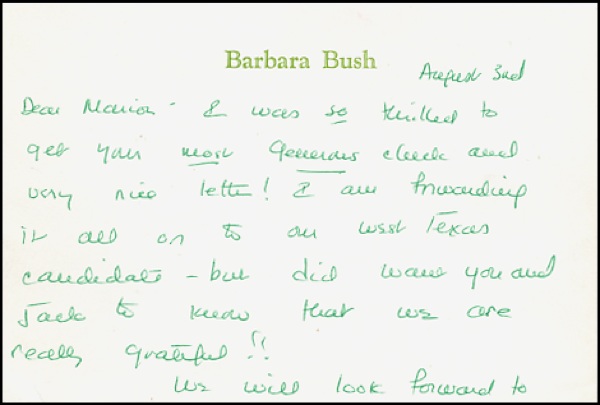 Barbara Bush
August 3rd
Dear Marion - I was so thrilled to
get your most generous check and
very nice letter! I am forwarding
it all on to our West Texas
candidate - but did want you and
Jack to know that we are
really grateful!!
We will look forward to